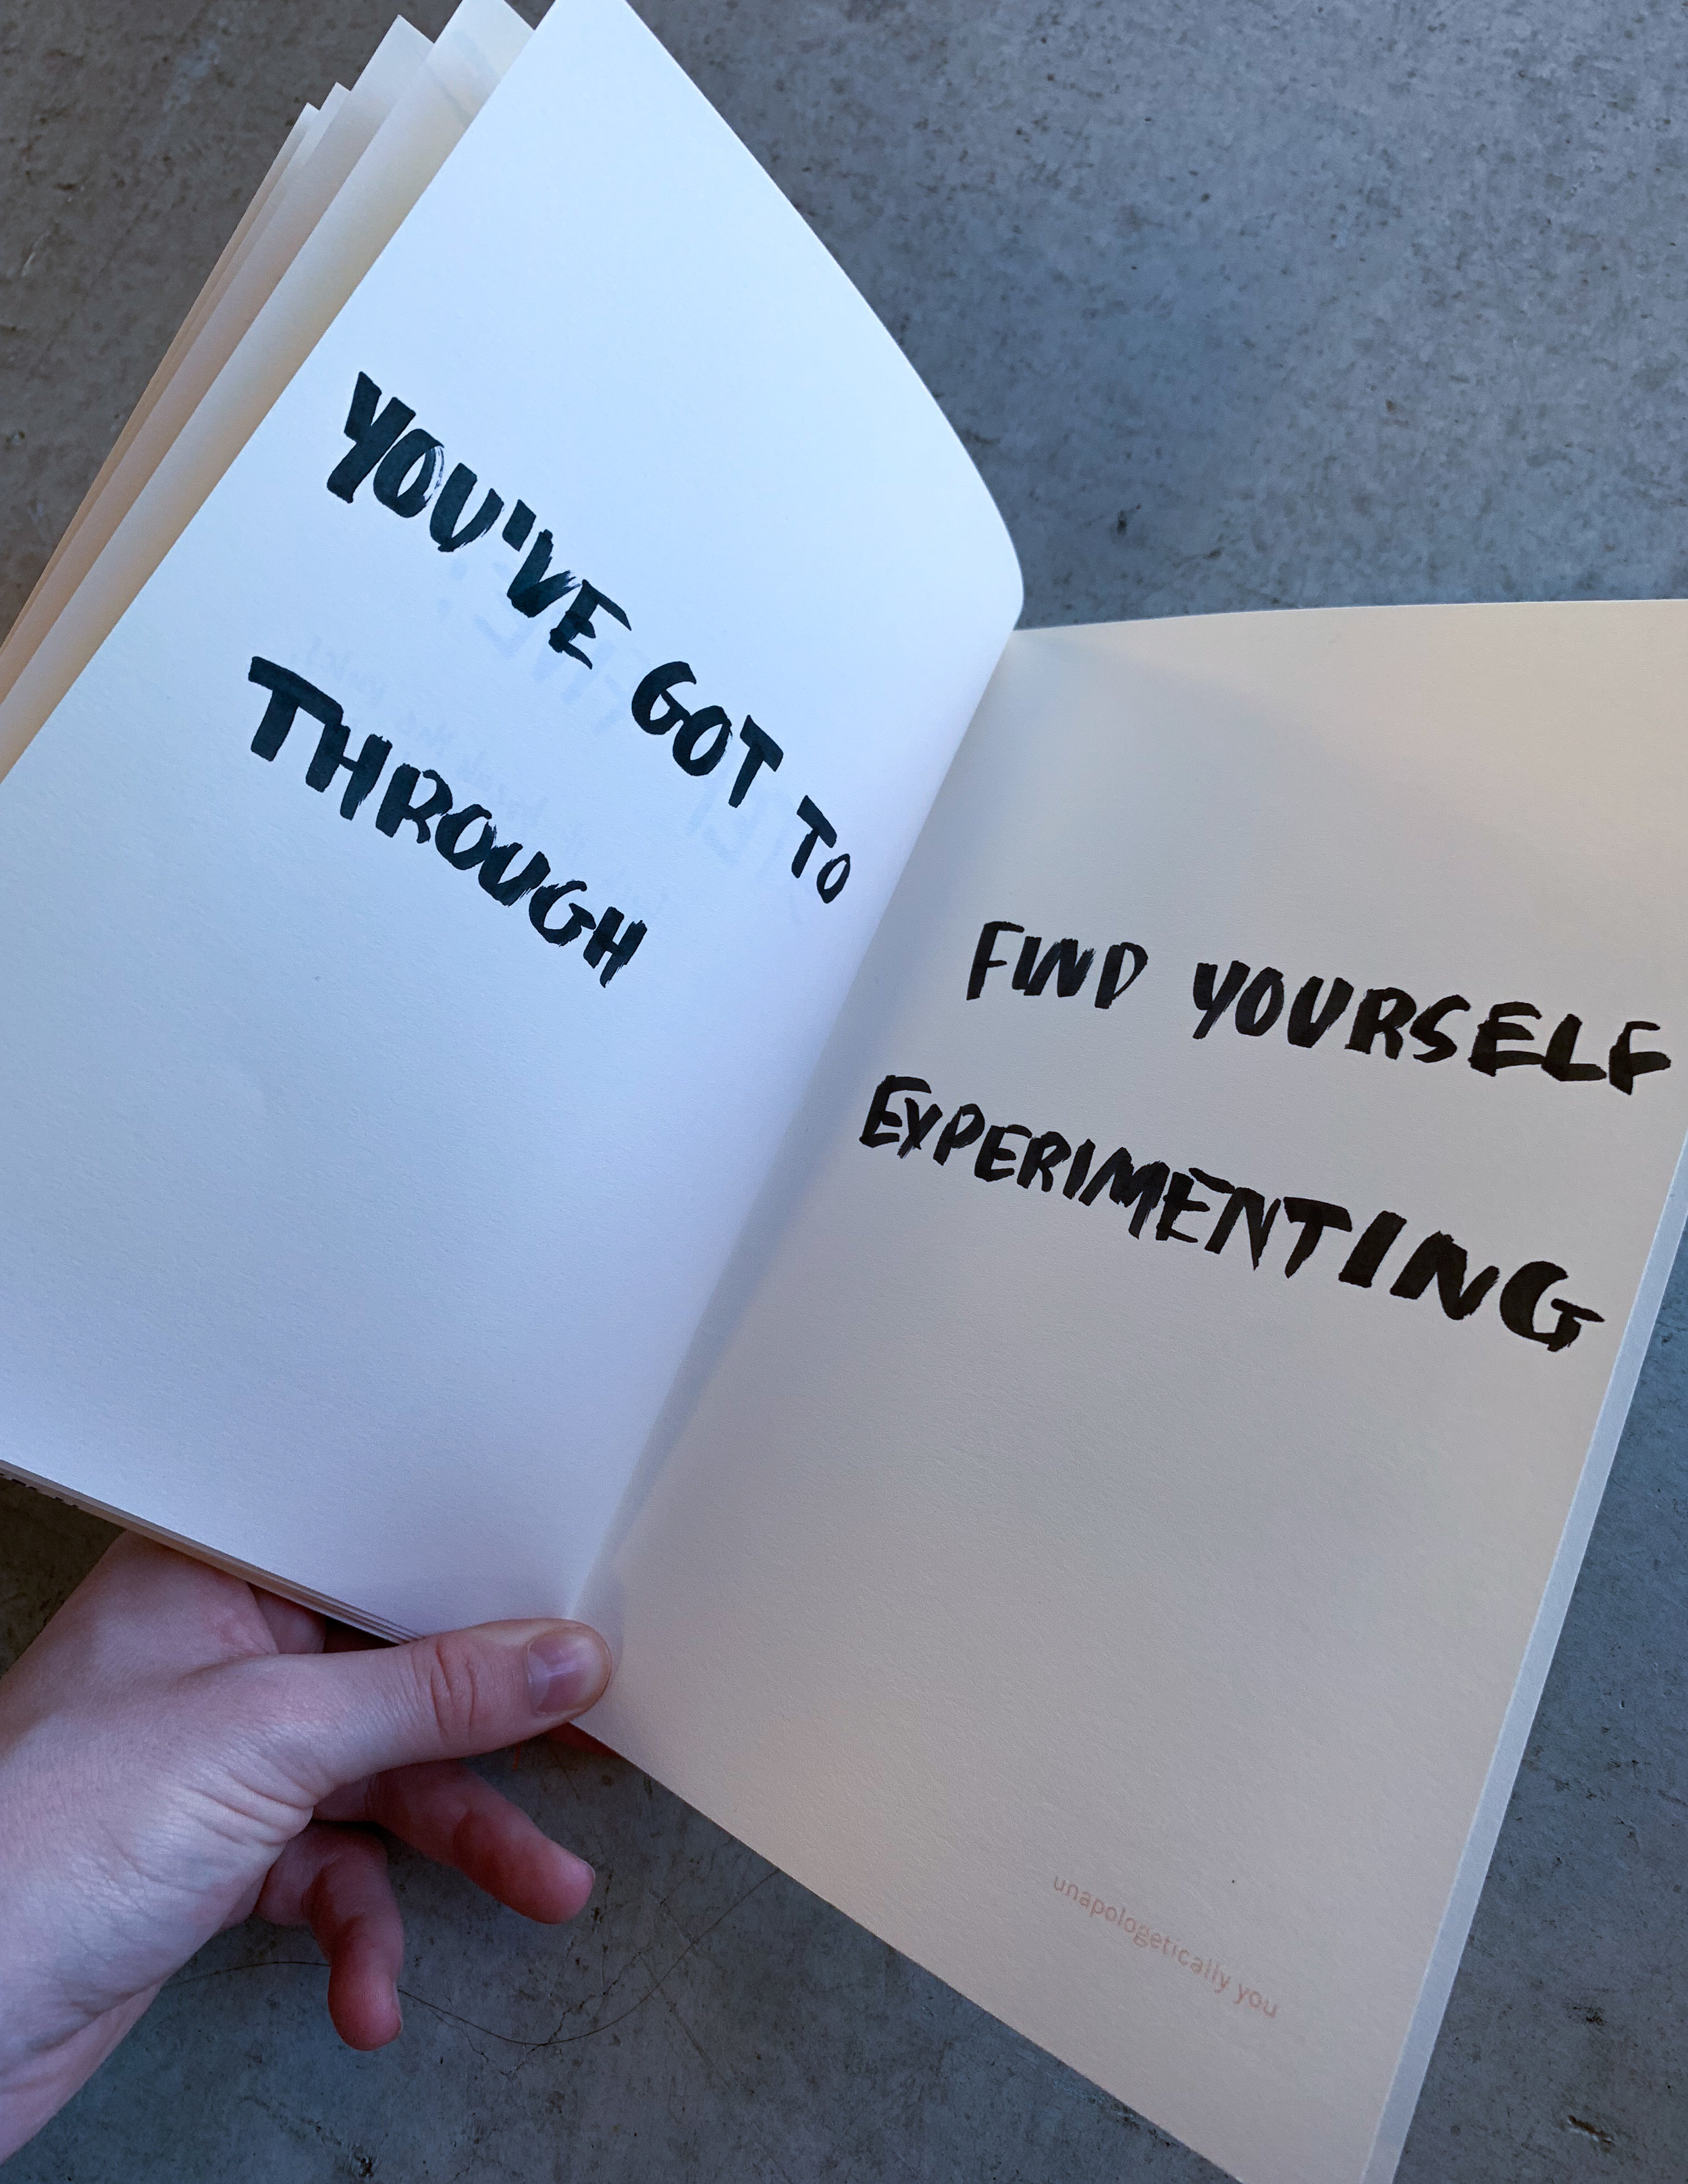 YOU'VE GOT TO
THROUGH
FIND YOURSELF
EXPERIMENTING
unapologetically you